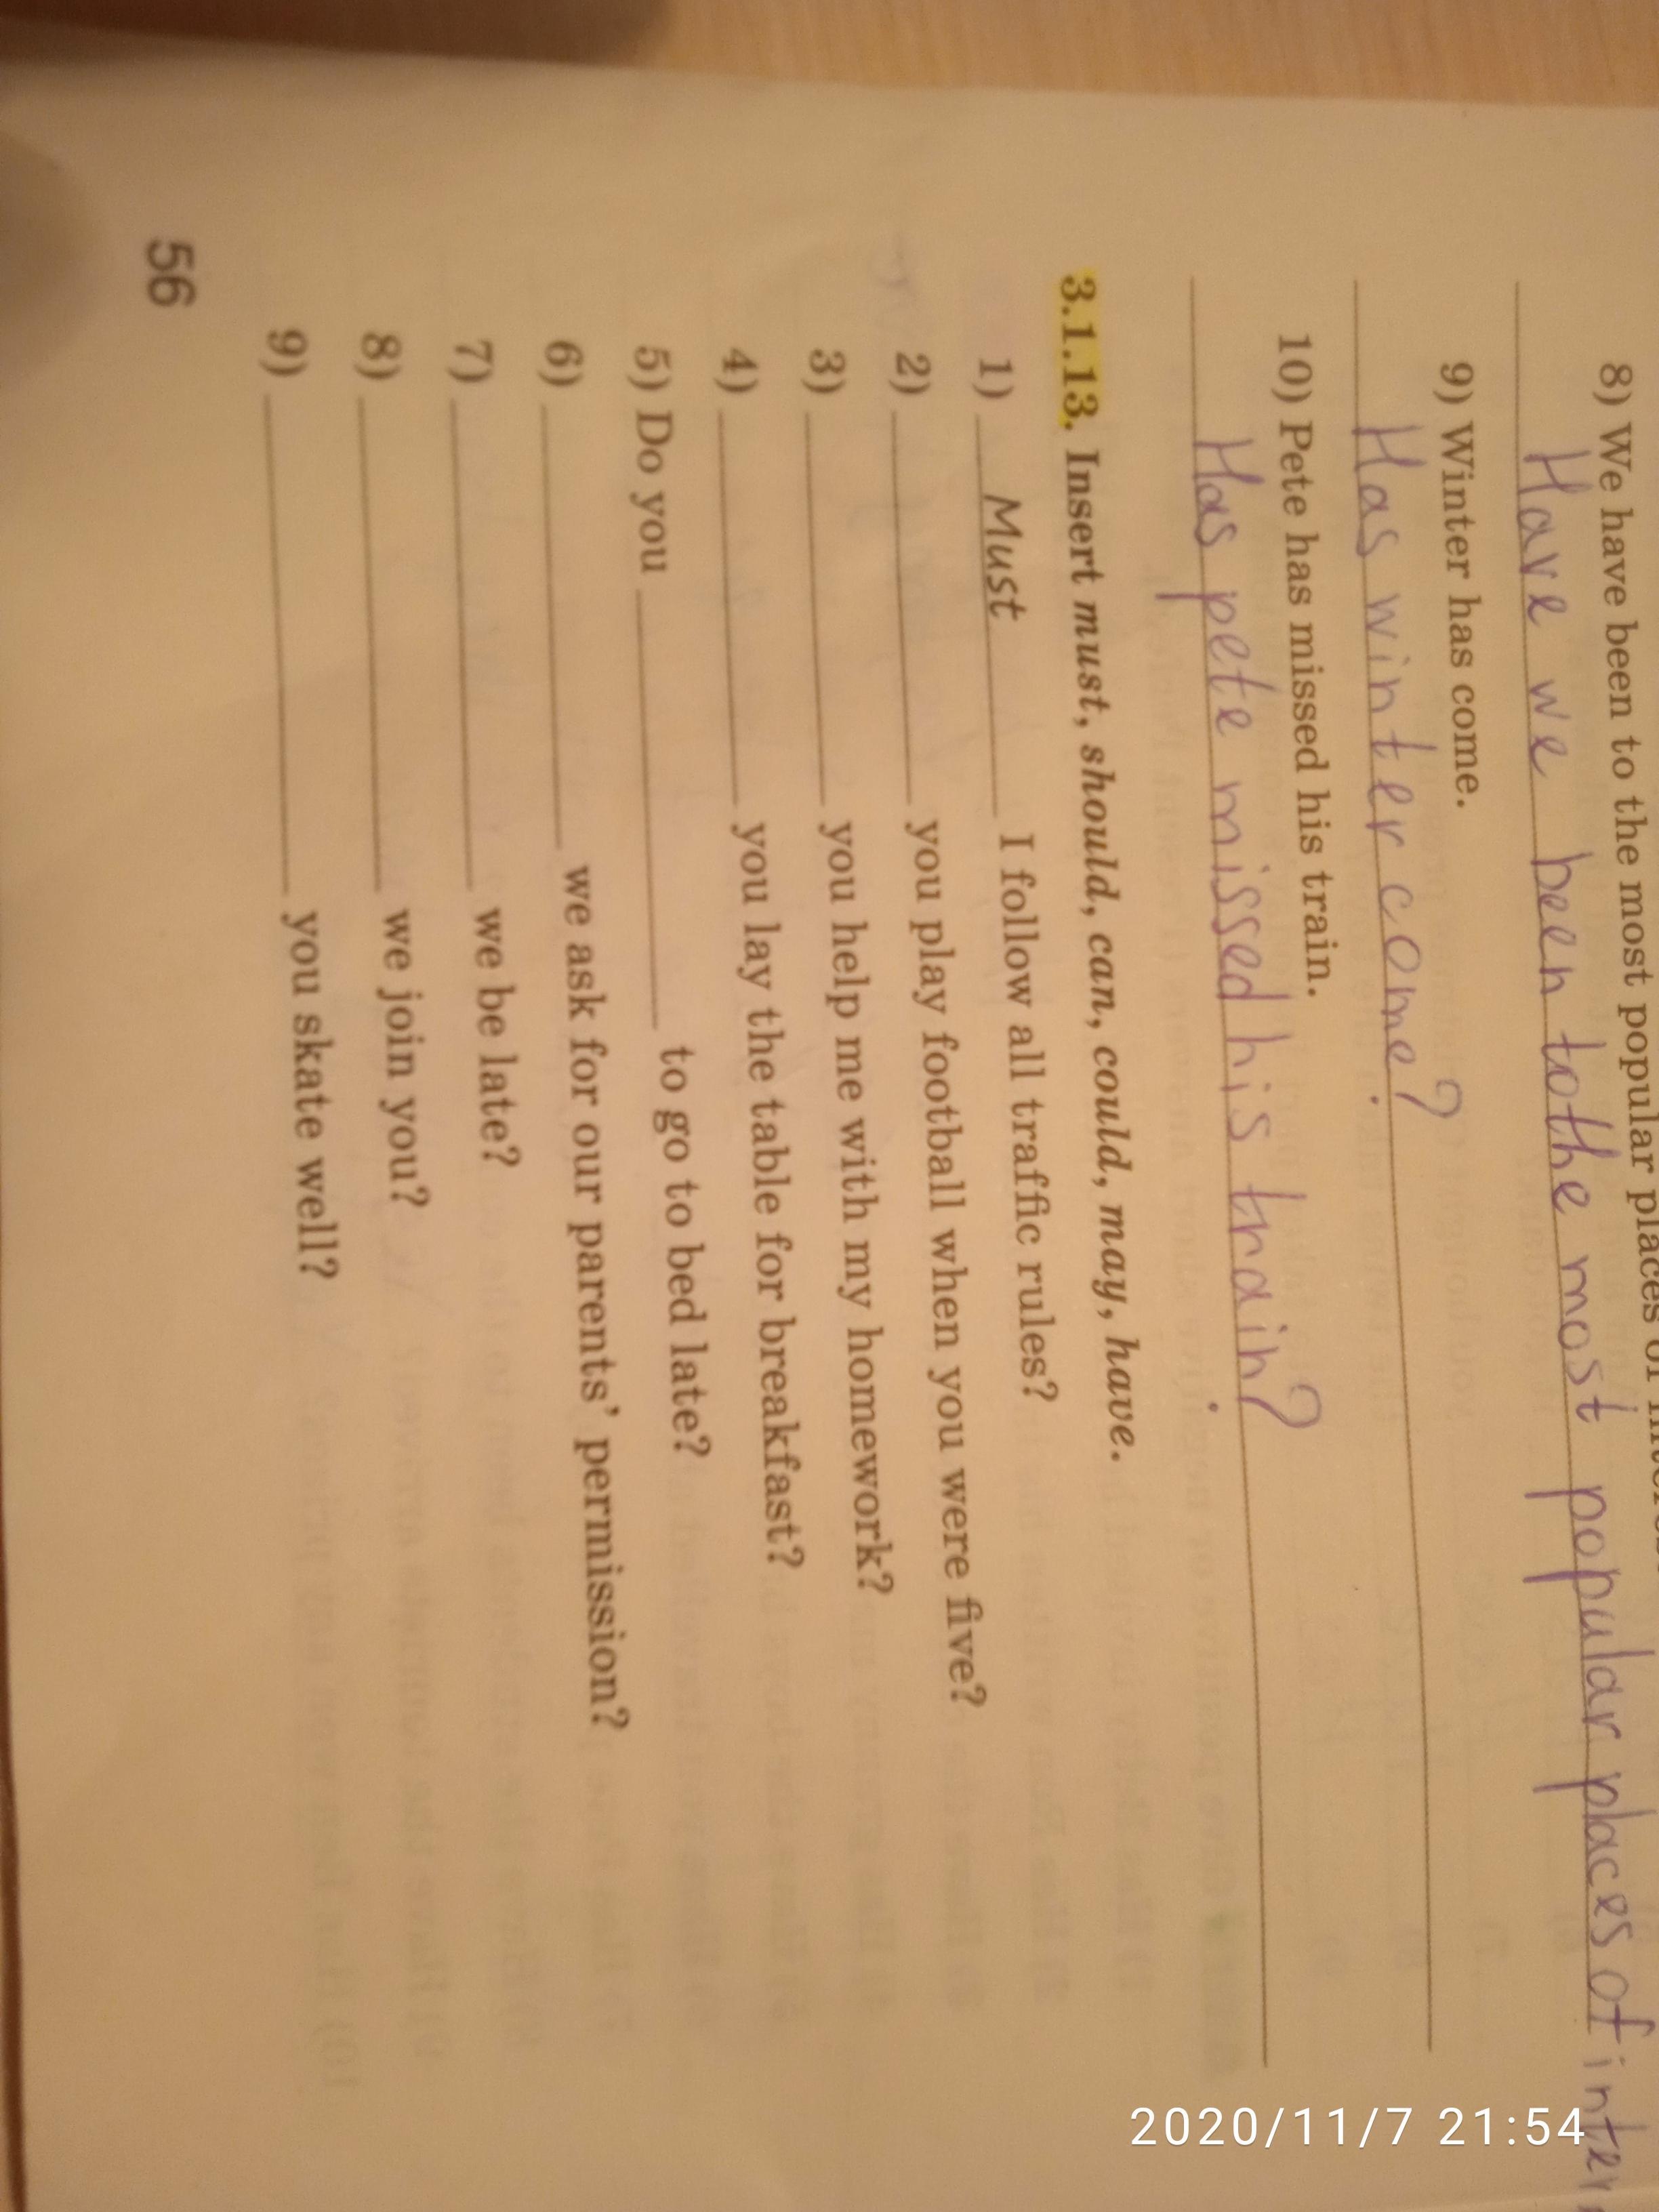 8) We have been to the most popular places of
Have we been to the most popular places of inter
9) Winter has come.
Has winter come?
10) Pete has missed his train.
Has pete missed his train?
3.1.13. Insert must, should, can, could, may, have.
1) Must I follow all traffic rules?
2) you play football when you were five?
3) you help me with my homework?
4) you lay the table for breakfast?
5) Do you to go to bed late?
6) we ask for our parents' permission?
7) we be late?
8) we join you?
9) you skate well?
56
2020/11/7 21:54